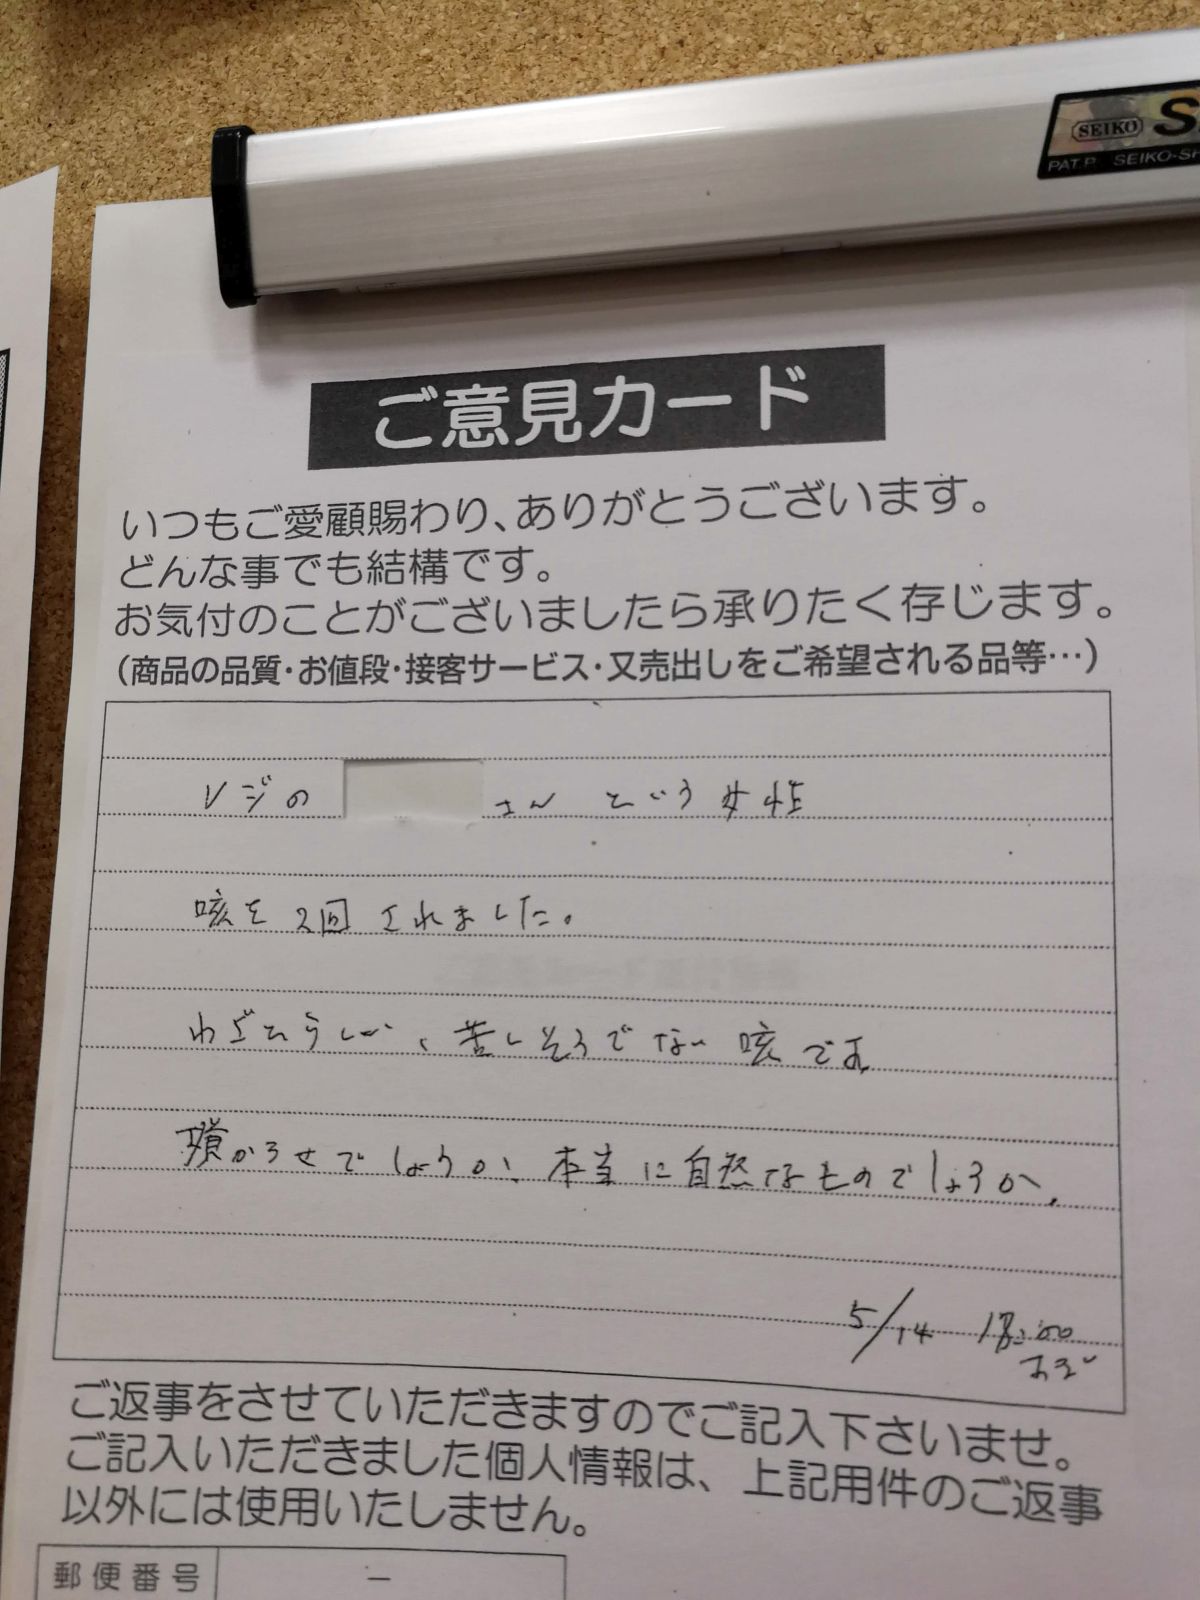 SEIKO S
PAT.P. SEIKO-SH
ご意見カード
いつもご愛顧賜わり、ありがとうございます。
どんな事でも結構です。
お気付のことがございましたら承りたく存じます。
(商品の品質・お値段・接客サービス・又売出しをご希望される品等…)
レジの さん という女性
咳を2回されました。
わざとらしい、苦しそうでない咳です。
かろせでしょうか、本当に自然なものでしょうか。
5/14 18:00
ごろ
ご返事をさせていただきますのでご記入下さいませ。
ご記入いただきました個人情報は、上記用件のご返事
以外には使用いたしません。
郵便番号 −